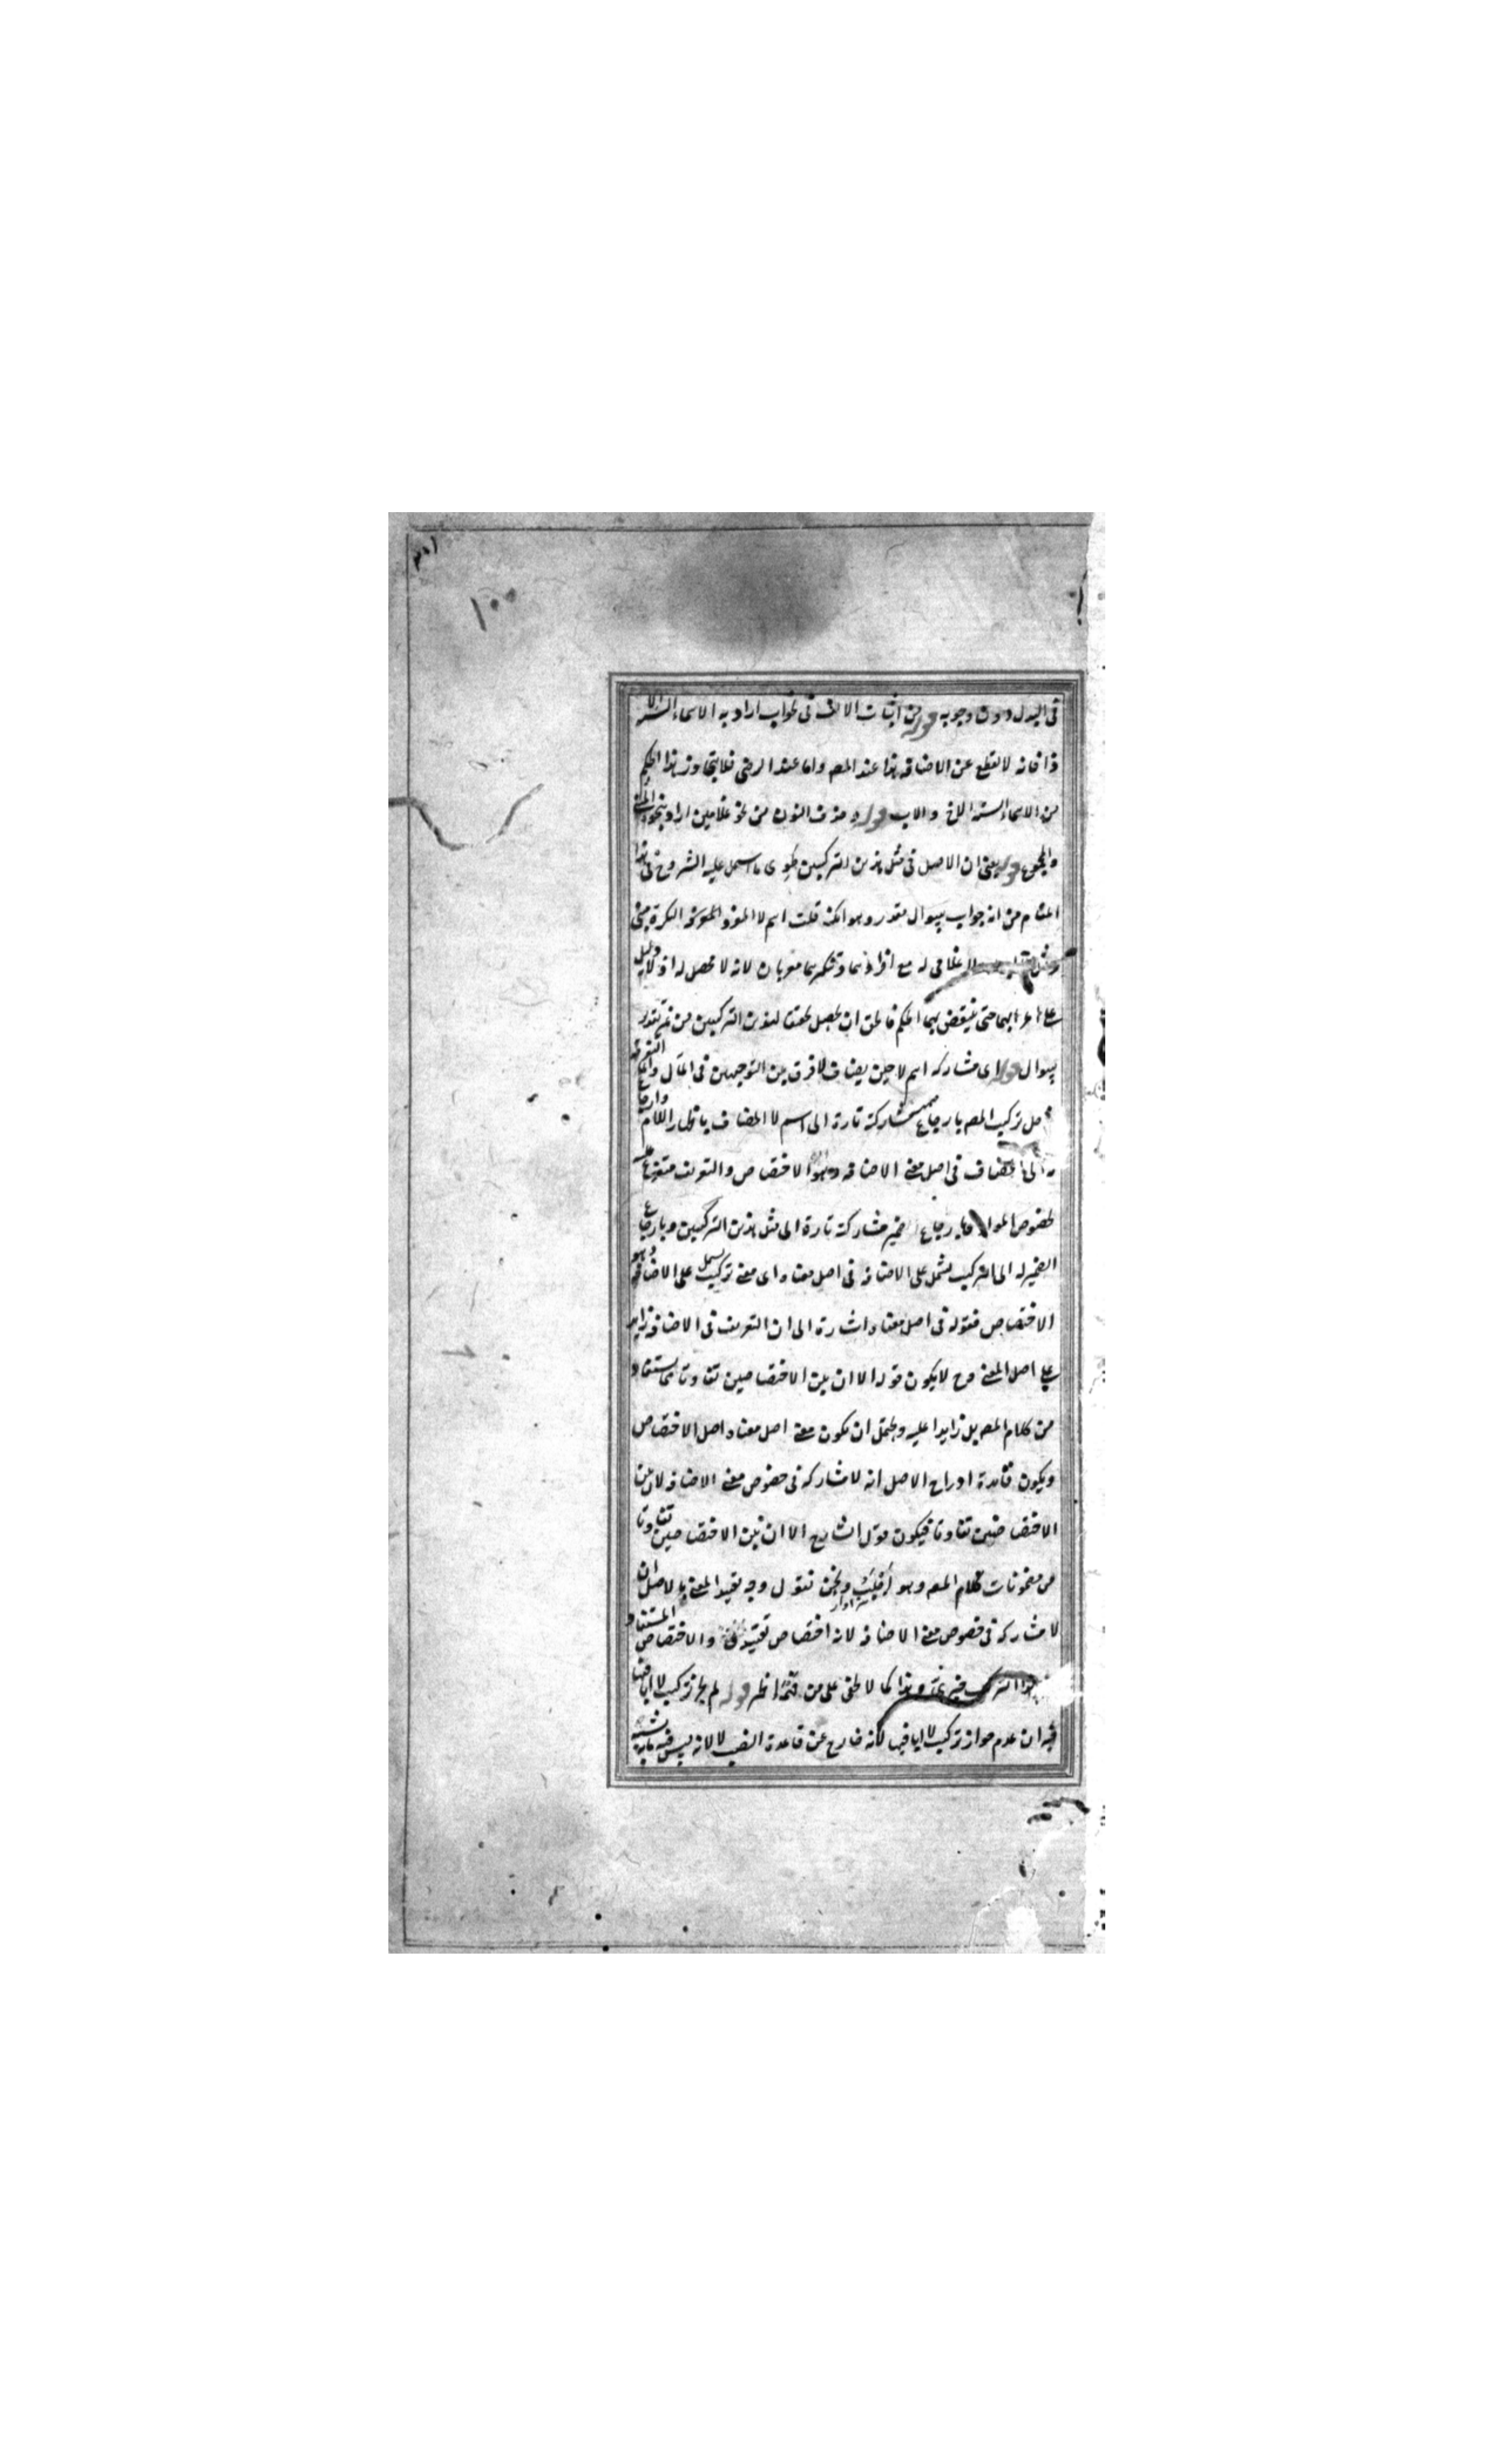 ١٠٠
فى البدل دون وجوبه قوله من اثبات الالف فى نحو اب اراد به الاسماء الستة الا
ذا فانه لا يقطع عن الاضافة هذا عند المصـ واما عند الرضى فلا يتجاوز هذا الحكم
من الاسماء الستة الاخ والاب قوله حذف النون من نحو غلامين اراد بنحوه المثنى
والمجموع قوله يعنى ان الاصل فى مثل هذين التركيبين طوى ما اشتمل عليه الشروح فى هذا
المقام من انه جواب سوال مقدر وهو انك قلت اسم لا المفرد النكرة مبنى
لا غلامى له مع افرادهما وتنكيرهما معربان لانه لا محصل له اذ لا دليل
على اعرابهما حتى ينتقض بهما الحكم فالحق ان يجعل تحقيقا لهذين التركيبين من غير تقدير
سوال قوله اى مشاركة اسم لا حين يضاف لا فرق بين التوجيهين فى المآل
تركيب المصـ بارجاع ضمير مشاركته تارة الى اسم لا المضاف باظهار اللام
الى المضاف فى اصل معنى الاضافة وهو الاختصاص والتعريف متفرع عليه
لخصوص المواد وبارجاع ضمير مشاركته تارة الى مثل هذين التركيبين وبارجاع
الضمير له الى التركيب يشمل على الاضافة فى اصل معناه اى معنى تركيب يشمل على الاضافة وهو
الاختصاص فقوله فى اصل معناه اشارة الى ان التعريف فى الاضافة زايد
على اصل المعنى وح لا يكون قوله الا ان بين الاختصاصين تفاوتا مستفادا
من كلام المصـ بل زايدا عليه ويحتمل ان يكون معنى اصل معناه اصل الاختصاص
ويكون فائدة ادراج الاصل انه لا مشاركة فى خصوص معنى الاضافة لان بين
الاختصاصين تفاوتا فيكون قول الشارح الا ان بين الاختصاصين تفاوتا
من مضمونات كلام المصـ وهو ونحن نقول وجه تقييد المعنى بالاصل ان
لا مشاركة فى خصوص معنى الاضافة لانه اختصاص تقييدى والاختصاص المستفاد
هذا التركيب خبرى وهذا كما لا يخفى على من قوله لم يجز تركيب لا ابا فيها
فيه ان عدم جواز تركيب لا ابا فيها لانه خارج عن قاعدة النصب لا لانه ليس فيه